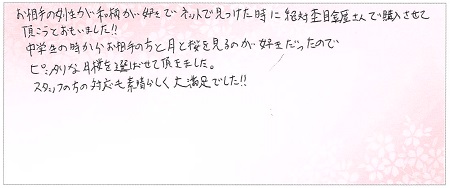 お相手の男性が和柄が好きでネットで見つけた時に絶対杢目金屋さんで購入させて
頂こうとおもいました!!
中学生の時からお相手の方と月と桜を見るのが好きだったので
ピッタリな月模を選ばせて頂きました。
スタッフの方の対応も素晴らしく大満足でした!!